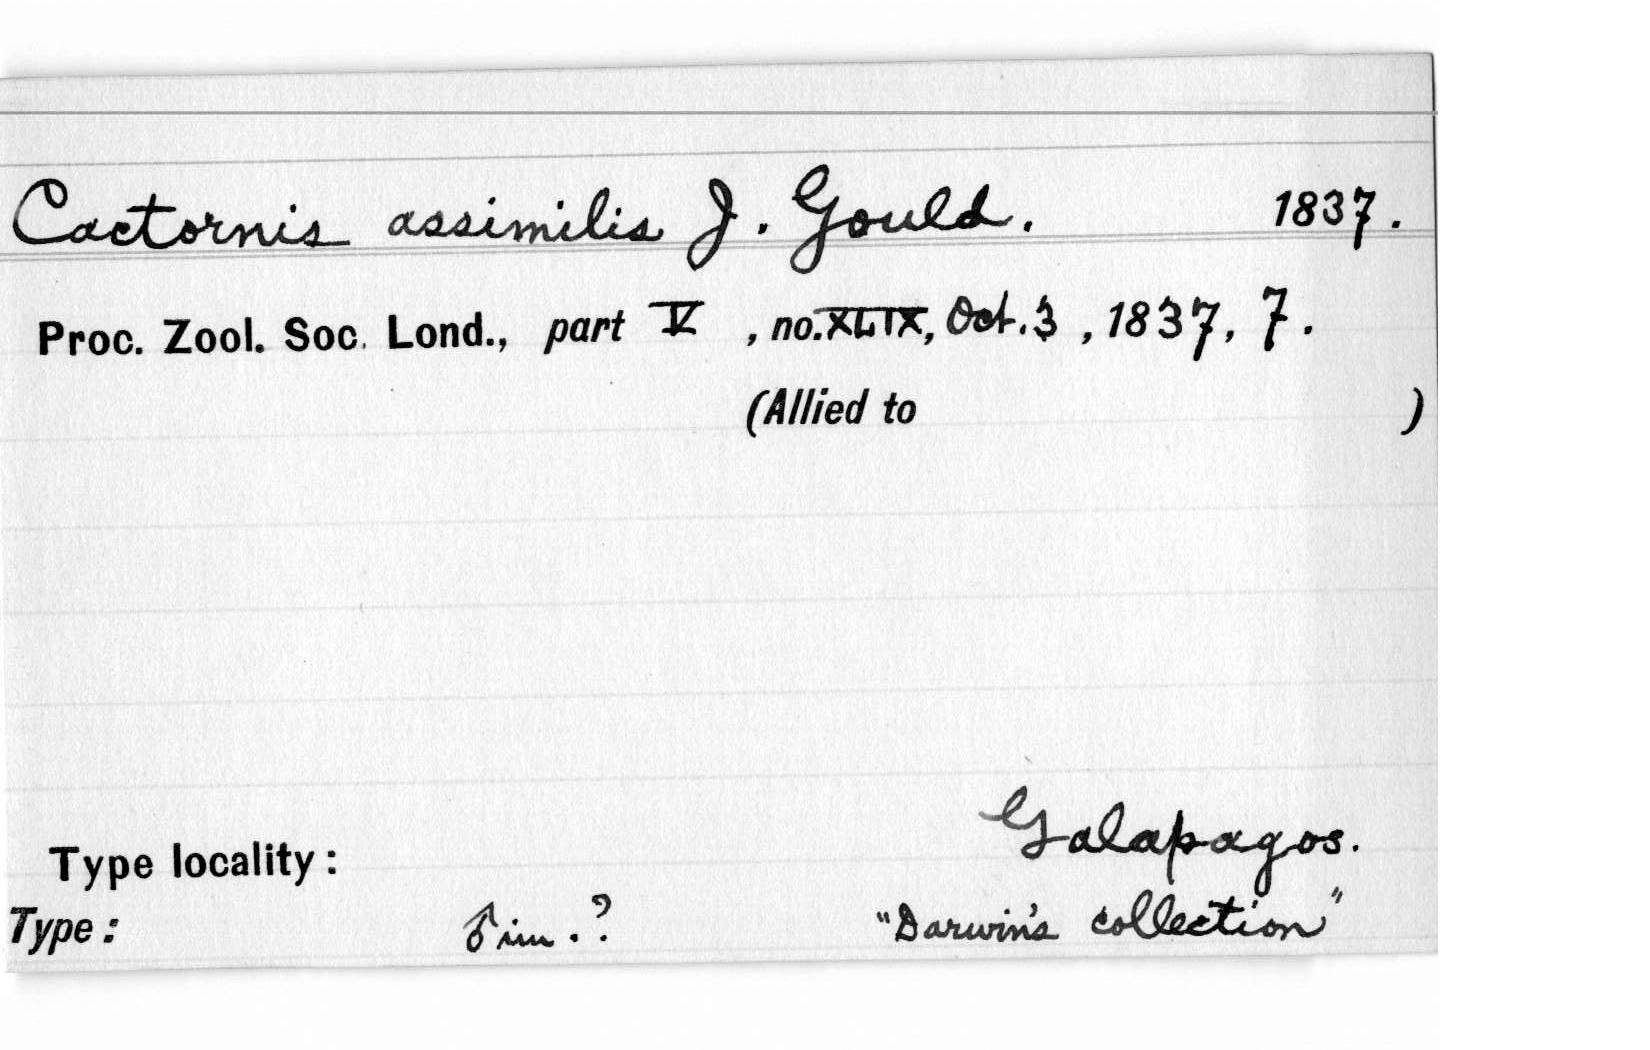 Cactornis assimilis J. Gould. 1837.
Proc. Zool. Soc. Lond., part V , no. XLIX, Oct. 3 , 1837, 7.
(Allied to )
Type locality: Galapagos.
Type: ♂ im. ? "Darwin's collection"